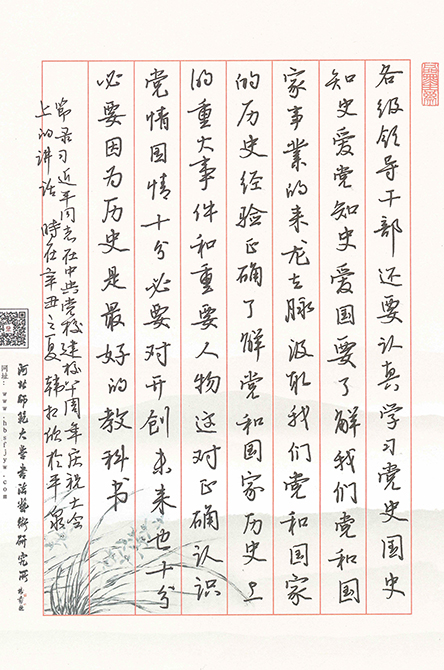 各级领导干部还要认真学习党史国史
知史爱党知史爱国要了解我们党和国
家事业的来龙去脉汲取我们党和国家
的历史经验正确了解党和国家历史上
的重大事件和重要人物这对正确认识
党情国情十分必要对开创未来也十分
必要因为历史是最好的教科书
节录习近平同志在中共党校建校八十周年庆祝大会
上的讲话 时在辛丑之夏 韩 于平泉
河北师范大学书法艺术研究所
网址：www.hbsfjyw.com